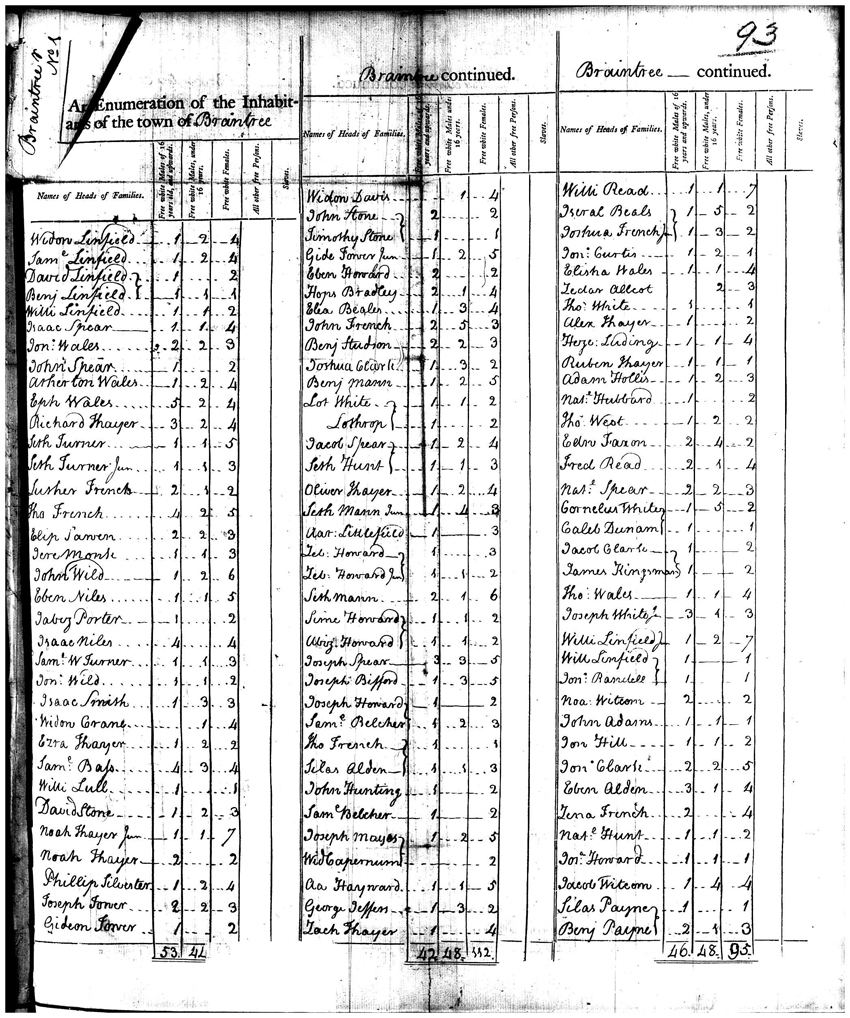 93
Braintree
No. 1
An Enumeration of the Inhabit-
ants of the town of Braintree
Names of Heads of Families.
Free white Males of 16 years old, and upwards.
Free white Males, under 16 years.
Free white Females.
All other free Persons.
Slaves.
Widow Linfield 1 2 4
Saml Linfield 1 2 4
David Linfield 1 2
Benj Linfield 1 1 1
Willi Linfield 1 1 2
Isaac Spear 1 1 4
Jonn Wales 2 2 3
John Spear 1 2
Atherton Wales 1 2 4
Eph Wales 5 2 4
Richard Thayer 3 2 4
Seth Turner 1 1 5
Seth Turner Jun 1 1 3
Luther French 2 1 2
Tho French 4 2 5
Elip Sawen 2 2 3
Jere Monk 1 1 3
John Wild 1 2 6
Eben Niles 1 1 5
Jabez Porter 1 2
Isaac Niles 4 4
Saml W Turner 1 1 3
Jonn Wild 1 1 2
Isaac Smith 1 3 3
Widow Crane 1 4
Ezra Thayer 1 2 2
Saml Bass 4 3 4
Willi Lull 1 1
David Stone 1 2 3
Noah Thayer Jun 1 1 7
Noah Thayer 2 2
Phillip Silvester 1 2 4
Joseph Fower 2 2 3
Gideon Fower 1 2
53. 41
Braintree continued.
Names of Heads of Families.
Free white Males of 16 years and upwards.
Free white Males, under 16 years.
Free white Females.
All other free Persons.
Slaves.
Widow Davis 1 4
John Stone 2 2
Timothy Stone 1 1
Gide Fower Jun 1 2 5
Eben Howard 2 2
Hops Bradley 2 1 4
Elea Beales 1 3 4
John French 2 5 3
Benj Hudson 2 2 3
Joshua Clark 1 3 2
Benj Mann 1 2 5
Lot White 1 1 2
Lothrop 1 2
Jacob Spear 1 2 4
Seth Hunt 1 1 3
Oliver Thayer 1 2 4
Seth Mann Jun 1 4 3
Aar. Littlefield 1 3
Zeb. Howard 1 3
Zeb. Howard Jun 1 1 2
Seth Mann 2 1 6
Sime Howard 1 1 2
Abiz. Howard 1 1 2
Joseph Spear 3 3 5
Joseph Bifford 1 3 5
Joseph Howard 1 2
Saml Belcher 1 2 3
Tho French 1 1
Silas Alden 1 1 3
John Hunting 1 2
Saml Belcher 1 2
Joseph Mayes 1 2 5
Wid Capernum 2
Aa Hayward 1 1 5
George Jeffers 1 3 2
Zach Thayer 1 4
42. 48. 112.
Braintree continued.
Names of Heads of Families.
Free white Males of 16 years and upwards.
Free white Males, under 16 years.
Free white Females.
All other free Persons.
Slaves.
Willi Read 1 1 7
Iseral Beals 1 5 2
Joshua French 1 3 2
Jonn Curtis 1 2 1
Elisha Wales 1 1 4
Zedar Allcot 2 3
Tho White 1 1
Alex Thayer 1 2
Heze. Luding 1 1 4
Ruben Thayer 1 1 1
Adam Hollis 1 2 3
Natl Hubbard 1 2
Tho West 1 2 2
Edw Faxon 2 4 2
Fred Read 2 1 4
Natl Spear 2 2 3
Cornelius White 1 5 2
Caleb Dunam 1 1
Jacob Clark 1 2
James Kingsman 1 2
Tho Wales 1 1 4
Joseph White Jn 3 1 3
Willi Linfield Jn 1 2 7
Will Linfield 1 1
Jonn Randell 1 1
Noa Witcom 2 2
John Adams 1 1 1
Jon Hill 1 1 2
Jonn Clark 2 2 5
Eben Alden 3 1 4
Zena French 2 4
Natl Hunt 1 1 2
Jonn Howard 1 1 1
Jacob Witcom 1 4 4
Silas Payne 1 1
Benj Payne 2 1 3
46. 48. 95.